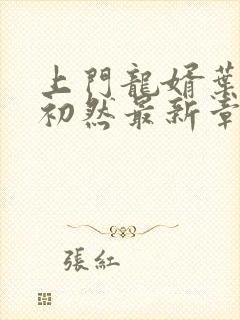 上門龍婿葉
初然最新章
張紅